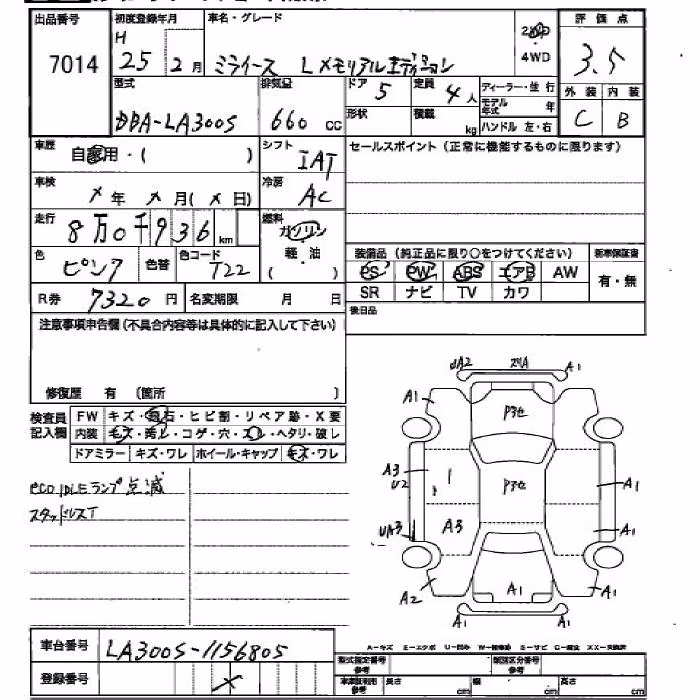 出品番号 初度登録年月 車名・グレード 評価点
7014 H 25 2月 ミライース Lメモリアルエディション 2WD 4WD 3.5
型式 排気量 ドア 5 定員 4人 ディーラー・並行 外装 内装
DBA-LA300S 660 CC 形状 積載 kg モデル年式 年 C B
ハンドル 左・右
車歴 自家用・( ) シフト IAT セールスポイント(正常に機能するものに限ります)
車検 ×年 ×月(×日) 冷房 AC
走行 8万0千936 km 燃料 ガソリン
軽・油
( )
色 ピンク 色替 色コード T22 装備品(純正品に限り○をつけてください) 新車保証書
PS PW ABS エアB AW 有・無
R券 7320円 名変期限 月 日 SR ナビ TV カワ
注意事項申告欄(不具合内容等は具体的に記入して下さい) 後日品
修復歴 有 〔箇所 〕
検査員 FW キズ・飛石・ヒビ割・リペア跡・X要
記入欄 内装 キズ・汚レ・コゲ・穴・スレ・ヘタリ・破レ
ドアミラー キズ・ワレ ホイール・キャップ キズ・ワレ
eco IDLEランプ点滅
スタッドレスT
UA2 A1
A1 P3セ
A3 U2 P3セ A1
UA3 A3 A1
A2 A1 A1
A1
車台番号 LA300S-1156805
登録番号 ×
A-キズ E-エクボ U-凹み W-補修跡 S-サビ C-腐食 XX-交換済
型式指定番号 参考 類別区分番号 参考
車庫証明用 参考 長さ cm 幅 cm 高さ cm